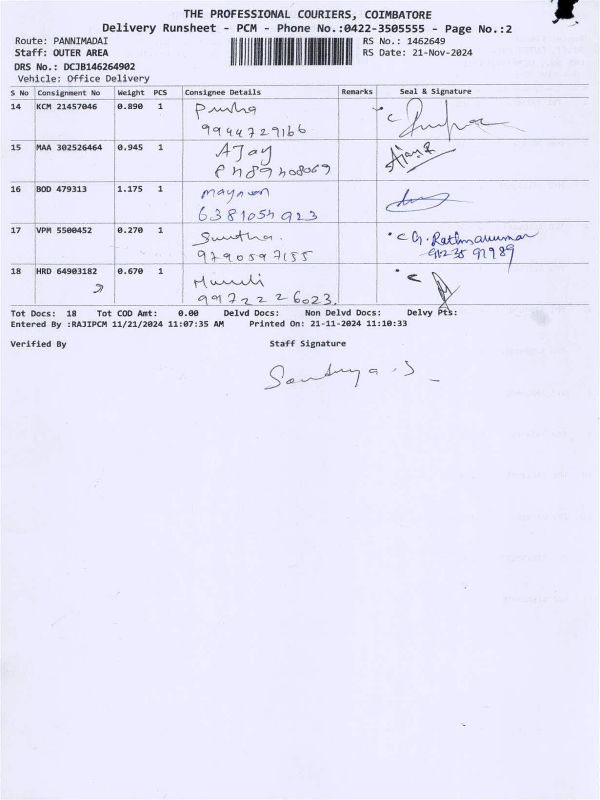 THE PROFESSIONAL COURIERS, COIMBATORE
Delivery Runsheet - PCM - Phone No.:0422-3505555 - Page No.:2
Route: PANNIMADAI RS No.: 1462649
Staff: OUTER AREA RS Date: 21-Nov-2024
DRS No.: DCJB146264902
Vehicle: Office Delivery
S No Consignment No Weight PCS Consignee Details Remarks Seal & Signature
14 KCM 21457046 0.890 1
9944729166
15 MAA 302526464 0.945 1 AJay Ajay
16 BOD 479313 1.175 1
6381054923
17 VPM 5500452 0.270 1
9790597155 91235 91989
18 HRD 64903182 0.670 1
9972226023.
Tot Docs: 18 Tot COD Amt: 0.00 Delvd Docs: Non Delvd Docs: Delvy Pts:
Entered By :RAJIPCM 11/21/2024 11:07:35 AM Printed On: 21-11-2024 11:10:33
Verified By Staff Signature